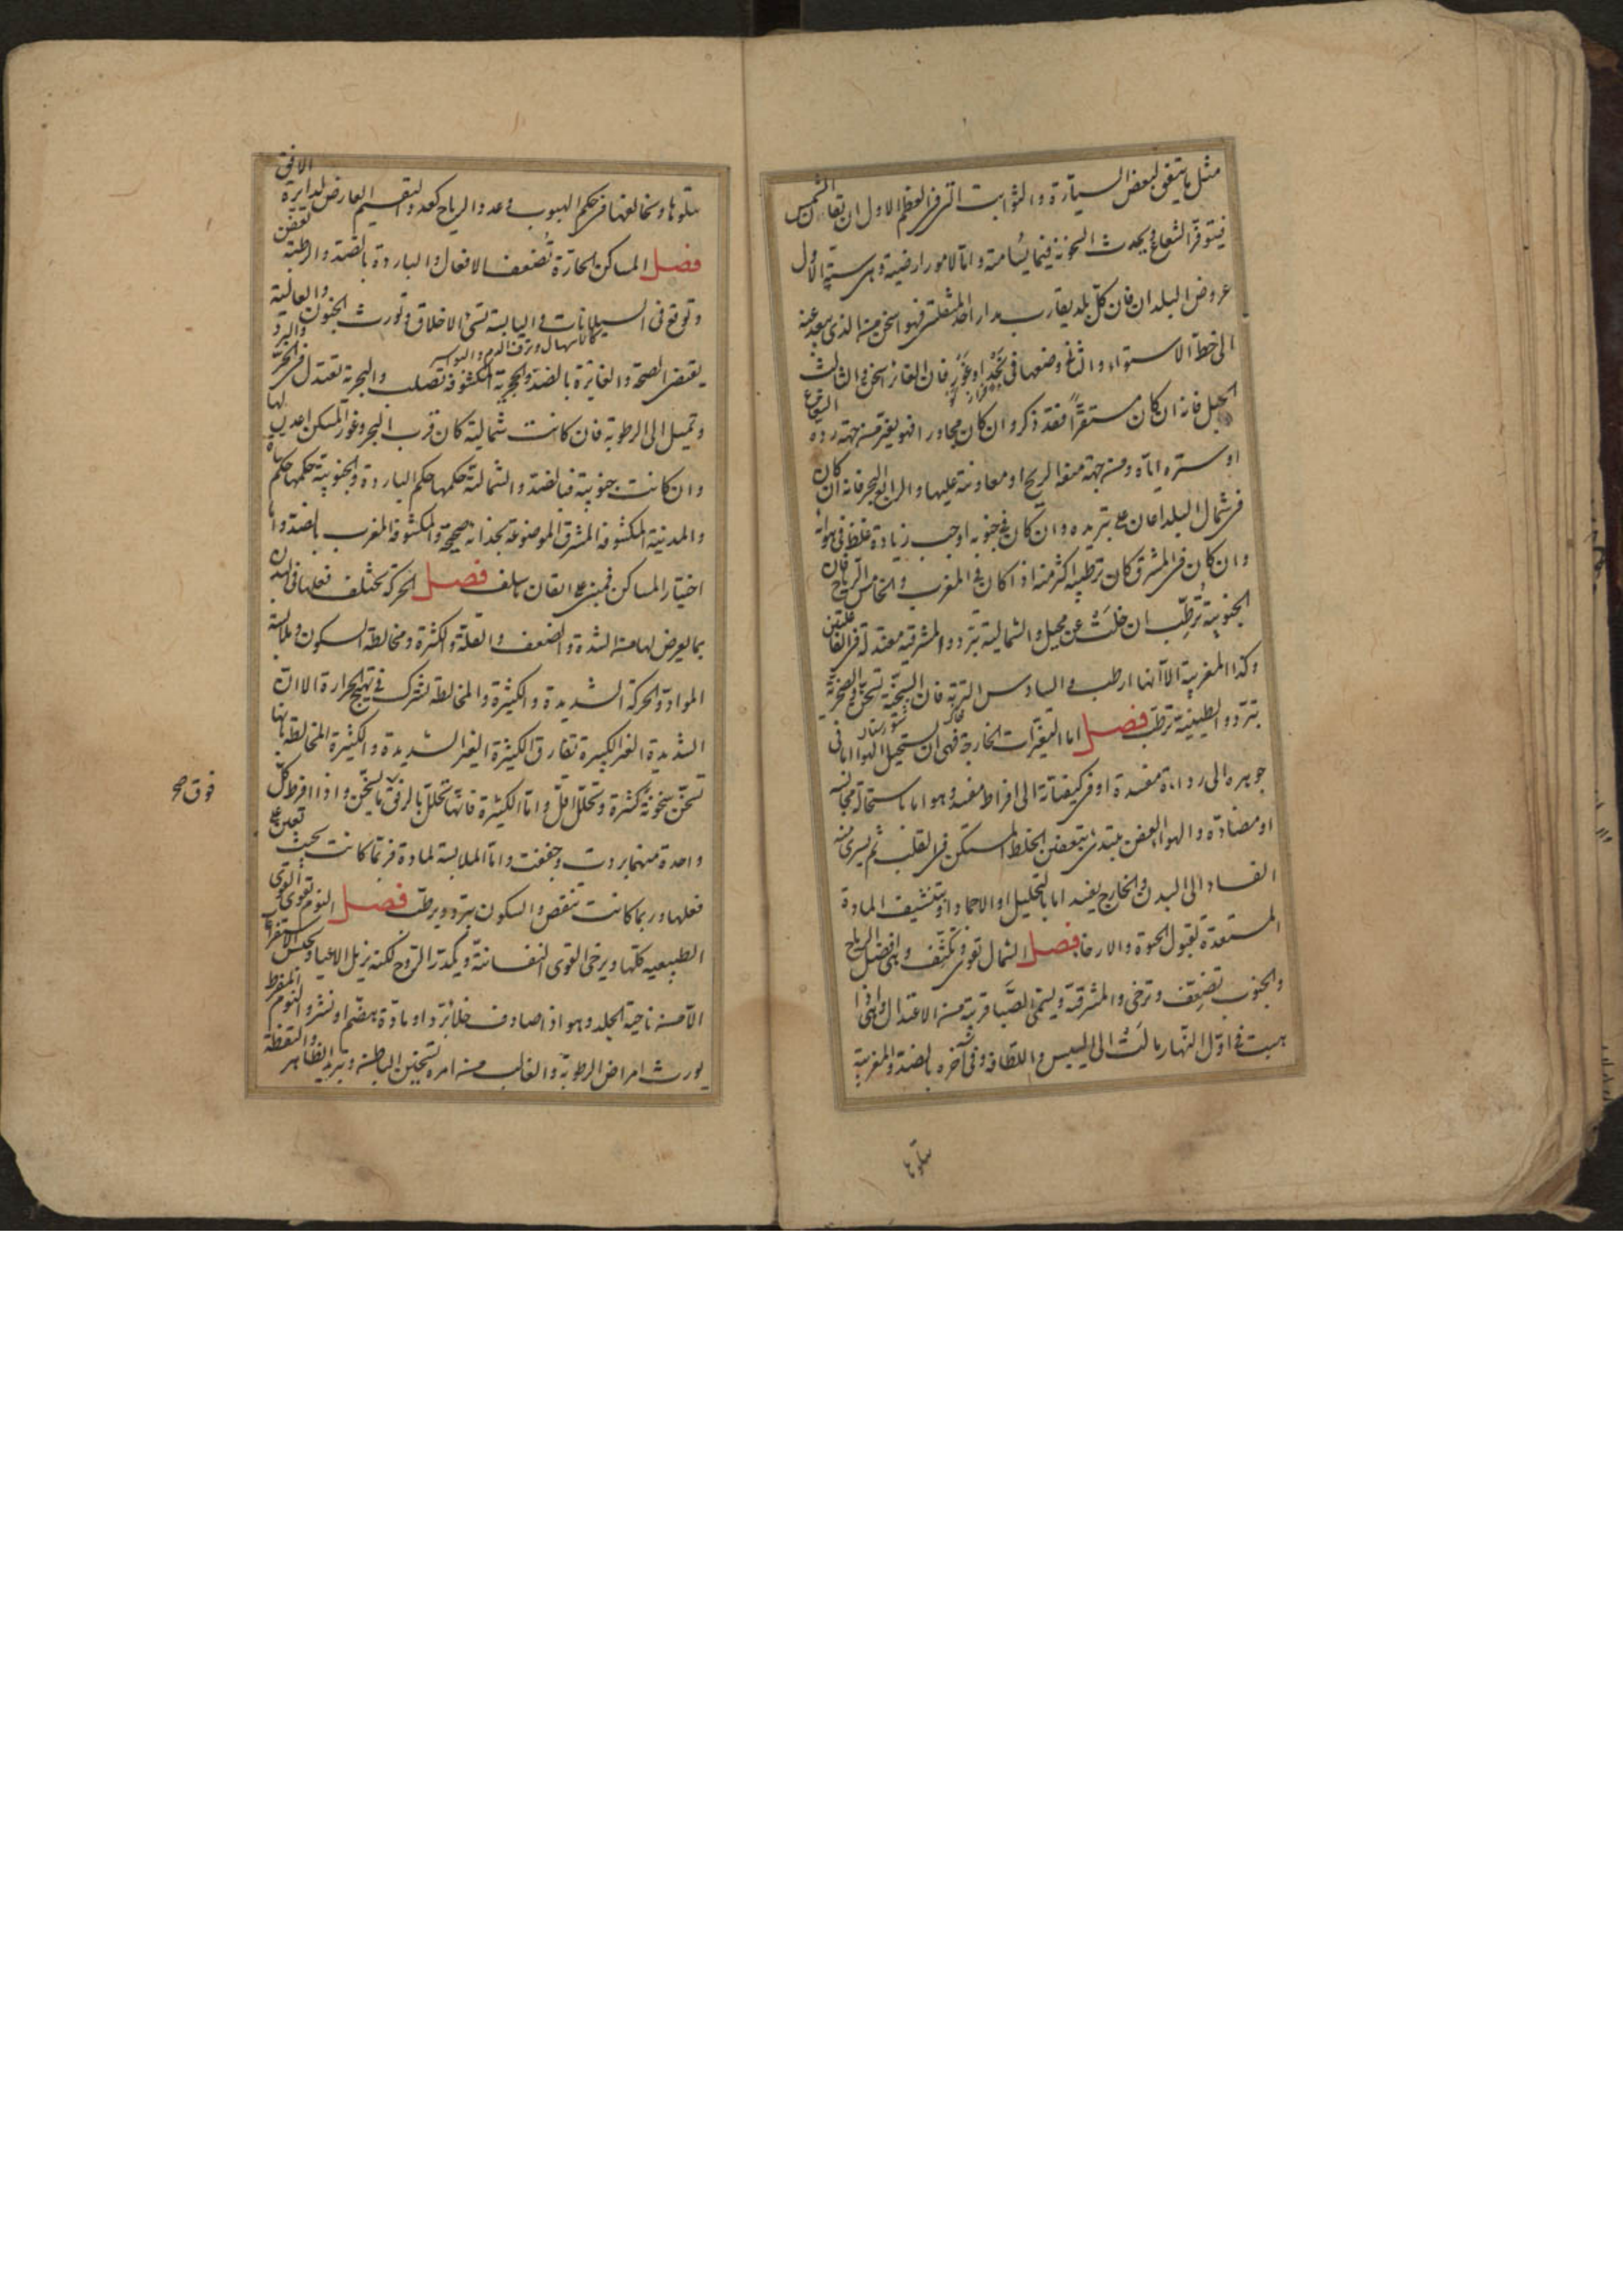 مثل ما يتفق لبعض السيارة والثوابت التى فى العظم الاول ان تقارن الشمس
فيتوفر الشعاع ويحدث السخونة فيما يسامته واما لامور ارضية وهى ستة الاول
عروض البلدان فان كل بلد يقارب مدار احد المنقلبين فهو اسخن من الذى يبعد عنه
الى خط الاستواء والثانى وضعها فى نجد او غور فان الغائر اسخن والثالث
الجبل فانه ان كان مستقرا فقد ذكر وان كان مجاورا فهو يغير من جهة رده الشعاع
او ستره اياه ومن جهة منعه الريح او معاونته عليها والرابع البحر فانه ان كان
فى شمال البلد اعان على تبريده وان كان فى جنوبه اوجب زيادة غلظ فى هوائه
وان كان فى المشرق كان ترطيبه اكثر منه اذا كان فى المغرب والخامس الرياح فان
الجنوبية ترطب ان خلت عن محيل والشمالية تبرد والمشرقية معتدلة فى الفاعلتين
وكذا المغربية الا انها ارطب والسادس التربة فان السبخية تسخن والصخرية
تبرد والطينية ترطب فصل اما التغيرات الخارجة فهى ان يستحيل الهوا اما فى
جوهره الى رداءة مفسدة او فى كيفياته الى افراط مفسد وهو اما باستحالة مجانسة
او مضادة والهوا العفن يبتدى بتعفن الخلط المستكن فى القلب ثم يسرى منه
الفساد الى البدن والخارج يفسد اما بالتحليل او الاجماد او بتنشيف المادة
المستعدة لقبول الحيوة والارخا فصل الشمال تقوى وتكثف وهى افضل الرياح
والجنوب تضعف وترخى والمشرقية ويسمى الصبا قريبة من الاعتدال وهى اذا
هبت فى اول النهار مالت الى اليبس واللطافة وفى آخره بالضد والمغربية
يتلوها
يتلوها وتخالفها فى حكم الهبوب وعدد الرياح كعدد التقسيم العارض لدايرة الافق
فصل المساكن الحارة تضعف الافعال والباردة بالضد والرطبة تعفن
وتوقع فى السيلانات واليابسة تسئ الاخلاق وتورث الجنون والعالية
كالاسهال ونزف الدم والبواسير
يقتضى الصحة والغايرة بالضد والحجرية المكشوفة تصلب والبحرية تعتدل فى الحر والبرد
وتميل الى الرطوبة فان كانت شمالية كان قرب البحر وغور المسكن اعدل لها
وان كانت جنوبية فبالضد والشمالية حكمها حكم الباردة والجنوبية حكمها حكم
والمدينة المكشوفة المشرق الموضوعة بحذائه صحيحة والمكشوفة المغرب بالضد واما
اختيار المساكن فمبنى على اتقان ما سلف فصل الحركة تختلف فعلها فى البدن
بما يعرض لها من الشدة والضعف والقلة والكثرة ومخالطة السكون وملابسة
المواد والحركة الشديدة والكثيرة والمخالطة تشترك فى تهييج الحرارة الا ان
الشديدة الغير الكثيرة تفارق الكثيرة الغير الشديدة والكثيرة المخالطة بانها
تسخن سخونة كثيرة وتحلل اقل واما الكثيرة فانها تحلل بالرفق فوق ما يسخن واذا افرط كل
واحدة منهما بردت وجففت واما الملابسة لمادة فربما كانت بحيث تعين على
فعلها وربما كانت تنقص والسكون يبرد ويرطب فصل النوم يقوى القوى
الطبيعيه كلها ويرخى القوى النفسانية ويكدر الروح لكنه يزيل الاعيا ويحبس الاستفراغ
الا من ناحية الجلد وهو اذا صادف خلا برد او مادة هضم او نشر والنوم المفرط
يورث امراض الرطوبة والغالب من امره تسخين الباطن وتبريد الظاهر واليقظة
فوق صح